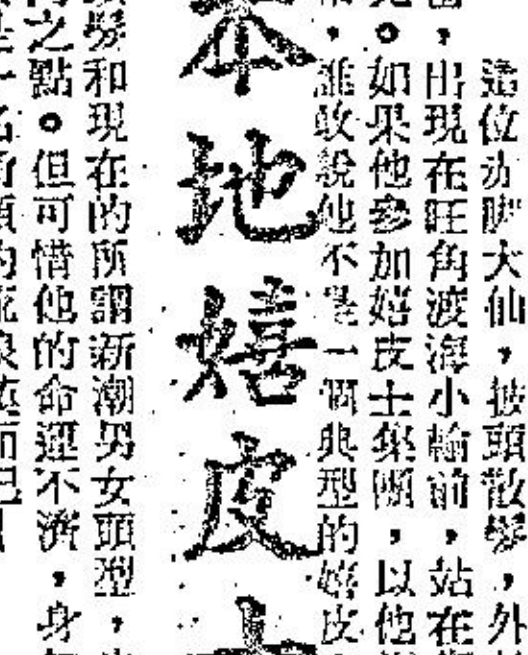 這位赤脚大仙，披頭散髮，外
出現在旺角渡海小輪前，站在
。如果他參加嬉皮士集團，以他
，誰敢說他不是一個典型的嬉皮
本地嬉皮士
髮和現在的所謂新潮男女頭型，
之點。但可惜他的命運不濟，身